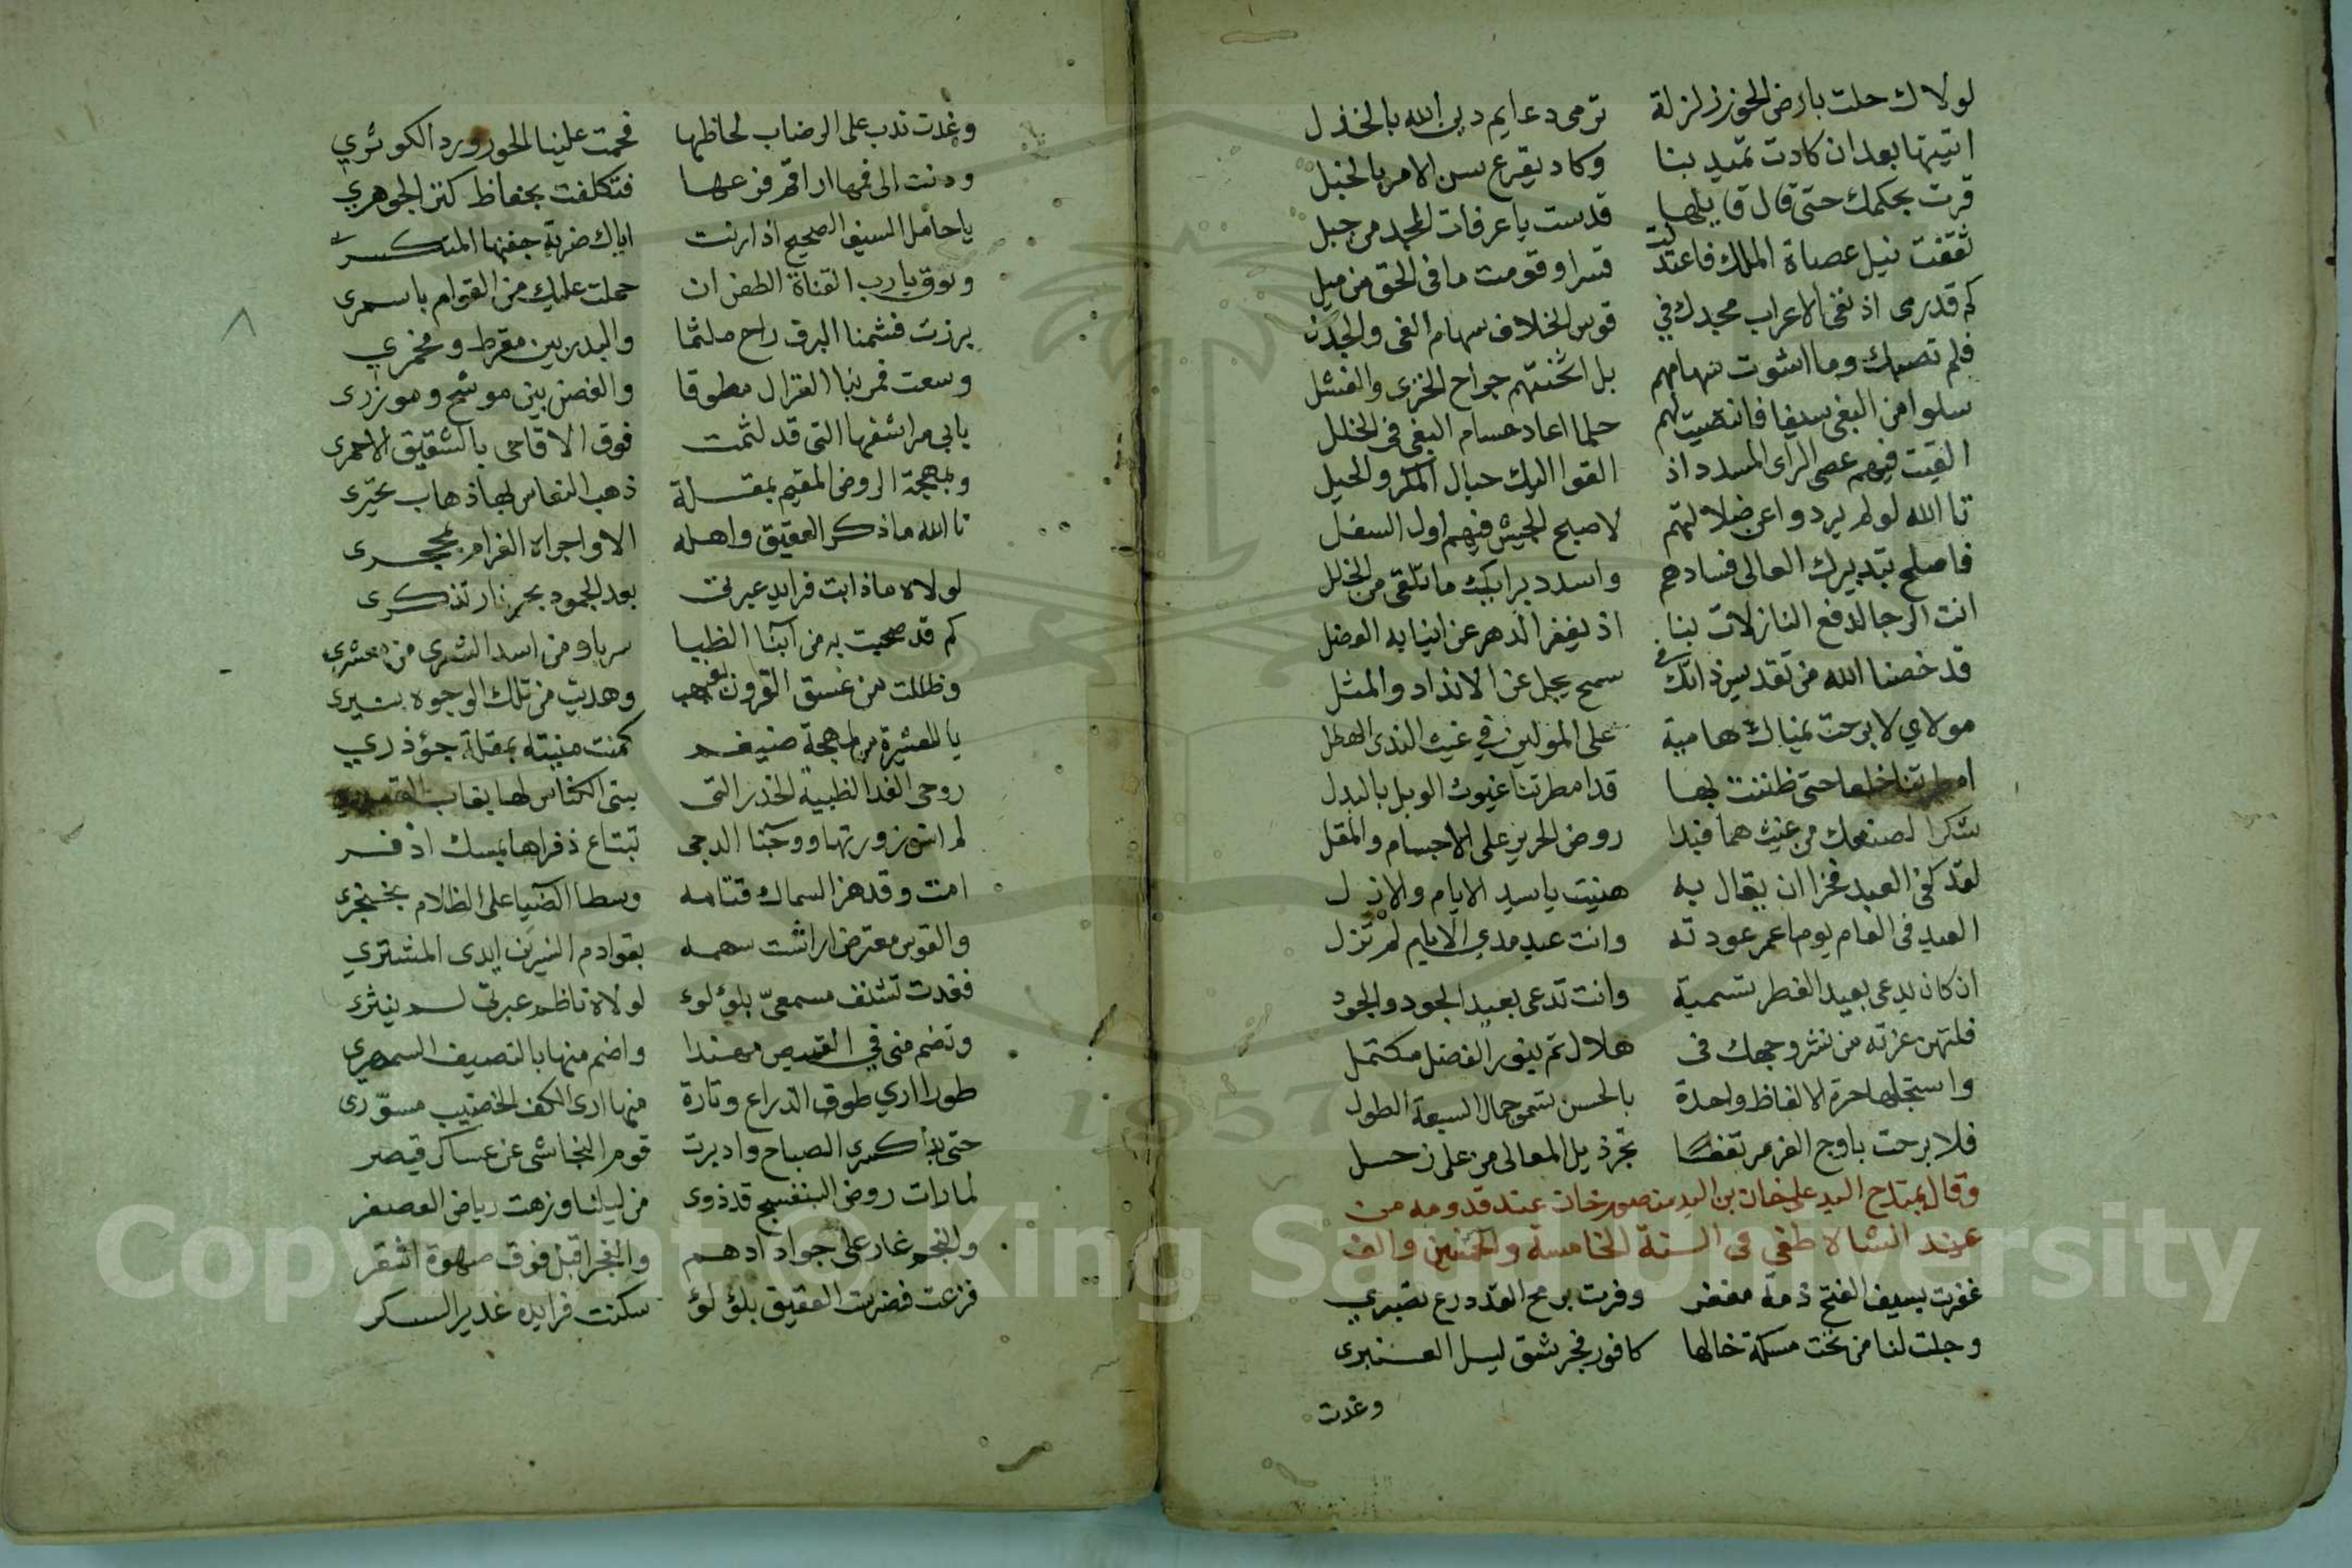 لولاك حلت بارض الحوز زلزلة ترمى دعايم دين الله بالخذل
اتيتها بعد ان كادت تميد بنا وكاد يقرع سن الامر بالخبل
قرت بحكمك حتى قال قايلها قدست يا عرفات المجد من جبل
ثقفت نيل عصاة الملك فاعتدلت قسرا وقومت ما فى الحق من ميل
كم قدرمى اذ نفى الاعراب مجدك في قوس الخلاف سهام الغى والجدل
فلم تصبك وما اشوت سهامهم بل اثخنتهم جراح الخزى والفشل
سلوا من البغى سيفا فانتضيت لهم حلما اعاد حسام البغى فى الخلل
القيت فيهم عصى الراى المسدد اذ القوا اليك حبال المكر والحيل
تا الله لو لم يردوا عن ضلالتهم لاصبح الجيش فيهم اول السفل
فاصلح بتدبيرك العالى فسادهم واسدد برايك ما تلقى من الخلل
انت الرجا لدفع النازلات بنا اذ يفغر الدهر عن انيابه العضل
قد خصنا الله من تقديس ذاتك فى سمح يجل عن الانداد والمثل
مولاي لا برحت يمناك هامية على المولين في غيث الندى الهطل
امطرتنا خلعا حتى ظننت بها قد امطرتنا غيوث الوبل بالبدل
شكرا لصنعك من غيث همافبدا روض الحرير على الاجسام والمقل
لقد كفى العبد فخرا ان يقال به هنيت يا سيد الايام والازل
العيد فى العام يوما عمر عودته وانت عيد مدى الايام لم تزل
ان كان يدعى بعيد الفطر تسمية وانت تدعى بعيد الجود والجود
فلتهن عزته من نشر وجهك فى هلال تم بنور الفضل مكتمل
واستجلها حرة الالفاظ واحدة بالحسن تسمو جمال السبعة الطول
فلا برحت باوج العز مرتفعا تجر ذيل المعالى من على زحل
وقال يمتدح السيد على خان بن السيد منصور خان عند قدومه من
عند الشاه صفى فى السنة الخامسة والخمسين والف
غفرت بسيف الفتح ذمة مغفر وفرت برمح القد درع تصبري
وجلت لنا من تحت مسكة خالها كافور فجر شق ليل العنبرى
وغدت
وغدت تذب على الرضاب لحاظها فحمت علينا الحور ورد الكوثري
ودنت الى فمها اراقم فرعها فتكلفت بحفاظ كنز الجوهري
يا حامل السيف الصحيح اذا رنت اياك ضربة جفنها المتكسر
وتوق يا رب القناة الطعن ان حملت عليك من القوام باسمرى
برزت فشمنا البرق راح ملثما والبدر بين مقرط ومخمري
وسعت فمر بنا الغزال مطوقا والغصن بين موشح وموزرى
بابى مراشفها التى قد لثمت فوق الاقاحى بالشقيق الاحمرى
وبمهجة الروض المقيم بمقلة ذهب النعاس بها ذهاب تحيرى
تا الله ما ذكر العقيق واهله الا واجراه الغرام بمحجرى
لولاه ما ذابت فرايد عبرتى بعد الجمود بحر نار تذكرى
كم قد صحبت به من ابنا الظبا سربا ومن اسد الشرى من معشري
وظللت من غسق القرون الغيهب وهديت من تلك الوجوه بنيرى
يا للعشيرة من لمهجة ضيغم كمنت منيته بمقلة جؤذري
روحى الفدا لظبية الخدر التى بنى الكناس لها بغاب
لم انس زورتها ووجنا الدجى تبتاع ذفراها بمسك اذفر
امت وقد هز السماك قناته وسطا الضيا على الظلام بخنجرى
والقوس معترض اراشت سهمه بقوادم النسرين ايدى المشتري
فغدت تشنف مسمعى بلؤلوء لولاه ناظم عبرتى لم ينثرى
وتضم منى في القميص مهندا واضم منها بالنصيف السمهري
طورا اري طوق الذراع وتارة منها ارى الكف الخضيب مسورى
حتى بدا كسرى الصباح وادبرت قوم النجاشى عن عساكر قيصر
لما رات روض البنفسج قد ذوى من ليلنا وزهت رياض العصفر
والنجم غار على جواد ادهم والفجر اقبل فوق صهوة اشقر
فزعت فضرست العقيق بلؤلؤ سكنت فرايده غدير السكر